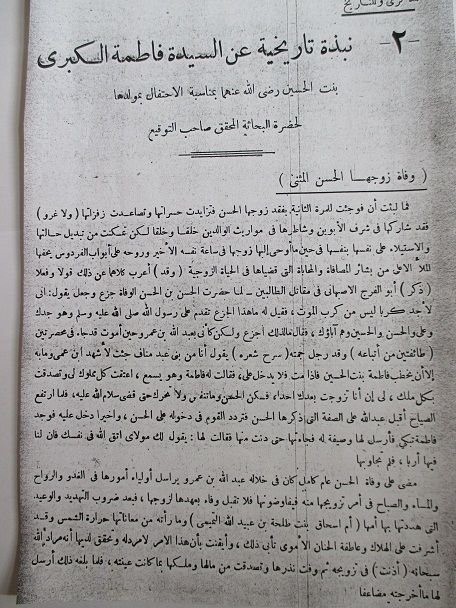 للذكرى وللتاريخ
-٢- نبذة تاريخية عن السيدة فاطمة الكبرى
بنت الحسين رضى الله عنهما بمناسبة الاحتفال بمولدها
لحضرة البحاثة المحقق صاحب التوقيع
( وفاة زوجها الحسن المثنى )
فما لبثت أن فوجئت للمرة الثانية بفقد زوجها الحسن فتزايدت حسراتها وتصاعدت زفراتها ( ولا غرو )
فقد شاركها فى شرف الأبوين وشاطرها فى مواريث الوالدين خلقا وخلقا لكن تمكنت من تبديل حالتها
والاستيلاء على نفسها بنفسها فى حين ما أوحى إليها زوجها فى ساعة نفسه الأخير وروحه على أبواب الفردوس يحفها
الملأ الأعلى من بشائر المصافاة والمحاباة التى قضياها فى الحياة الزوجية ( وقد ) أعرب كلاهما عن ذلك قولا وفعلا
( ذكر ) أبو الفرج الاصبهانى فى مقاتل الطالبيين لما حضرت الحسن بن الحسن الوفاة جزع وجعل يقول: انى
لأجد كربا ليس من كرب الموت، فقيل له ماهذا الجزع تقدم على رسول الله صلى الله عليه وسلم وهو جدك
وعلى والحسن والحسين وهم آباؤك، فقال مالذلك أجزع ولكن كأنى بعبد الله بن عمرو حين أموت قد جاء فى محصرتين
( طائفتين من أتباعه ) وقد رجل جمته ( سرح شعره ) يقول أنا من بنى عبد مناف جئت لأشهد ابن عمى ومابه
إلا أن يخطب فاطمة بنت الحسين فاذا مت فلا يدخل على، فقالت له فاطمة وهو يسمع، اعتقت كل مملوك لى وتصدقت
بكل ملك، لى إن أنا تزوجت بعدك احدا، فسكن الحسن وما تنفس ولا تحرك حتى قضى سلام الله عليه، فلما ارتفع
الصياح أقبل عبد الله على الصفة التى ذكرها الحسن فتردد القوم فى دخوله على الحسن، واخيرا دخل عليه فوجد
فاطمة تبكى فأرسل لها وصيفة له فجاءتها حتى دنت منها فقالت لها: يقول لك مولاى اتق الله فى نفسك فان لنا
فيها أربا، فلم تجاوبها
مضى على وفاة الحسن عام كامل كان فى خلاله عبد الله بن عمرو يراسل أولياء أمورها فى الغدو والرواح
والمساء والصباح فى أمر تزويجها منه فيفاوضونها فلا تقبل وفاء بعهدها لزوجها، فبعد ضروب التهديد والوعيد
التى هددتها بها أمها ( أم اسحاق بنت طلحة بن عبيد الله التيمى ) وما رأته من معاناتها حرارة الشمس وقد
أشرفت على الهلاك وعاطفة الحنان الأموى تأبى ذلك، وأيقنت بأن هذا الامر لامرد له وتحقق لديها أنه مراد الله
سبحانه ( أذنت ) فى تزويجه ثم وفت نذرها وتصدقت من مالها وملكها بما كانت عينته، فلما بلغه ذلك أرسل
لها ما أخرجته مضاعفا